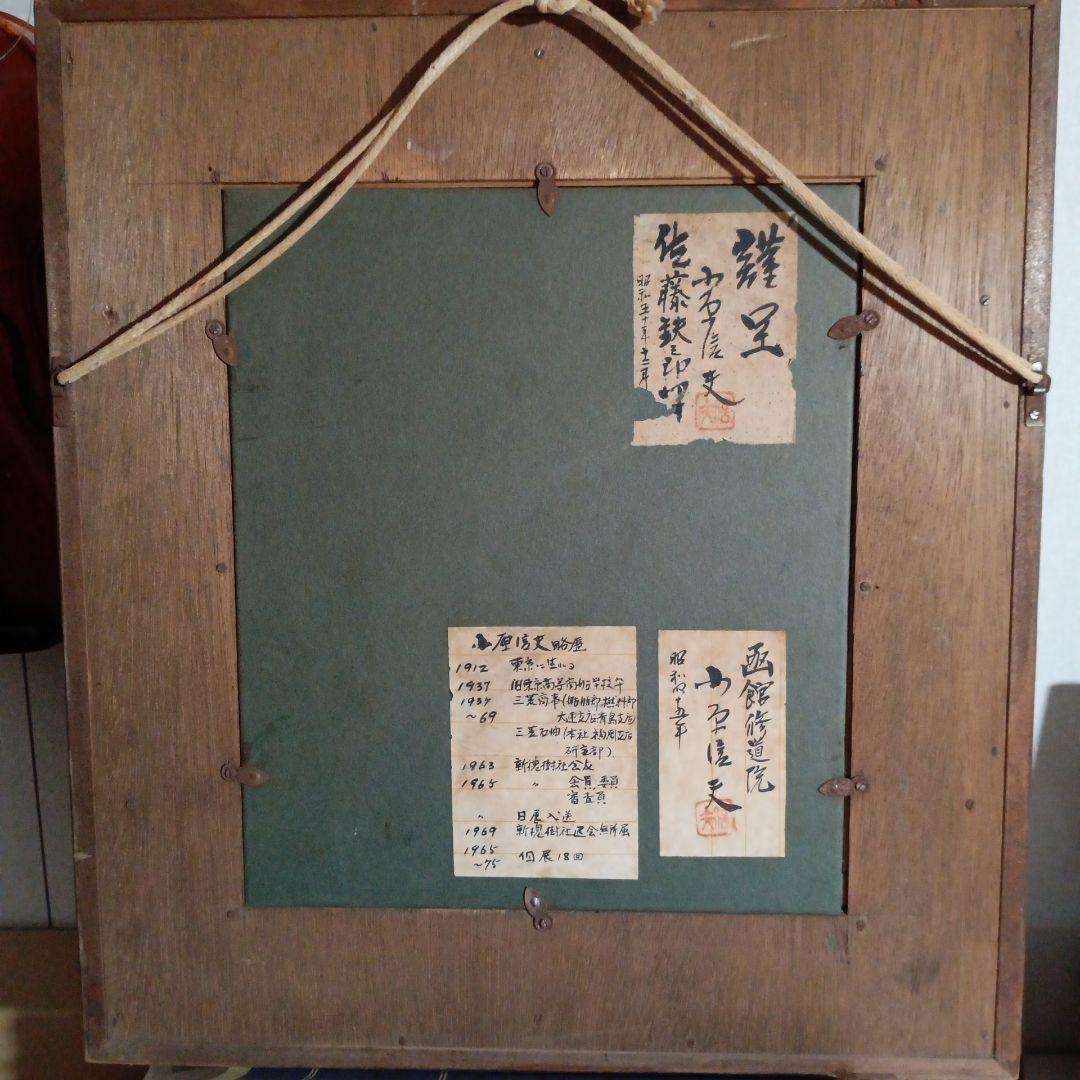 謹呈
小原信夫
佐藤鉄郎
昭和五十年十二月
函館修道院
小原信夫
昭和四十五年
小原信夫略歴
1912 東京に生れる
1937 旧東京高等商船学校卒
1937 三菱商事(船舶部、燃料部
～69 大連支店青島支店
三菱石油(本社、福岡支店
研究部)
1963 新槐樹社会友
1965 〃 会員、委員
審査員
〃 日展入選
1969 新槐樹社退会無所属
1965
～75 個展18回